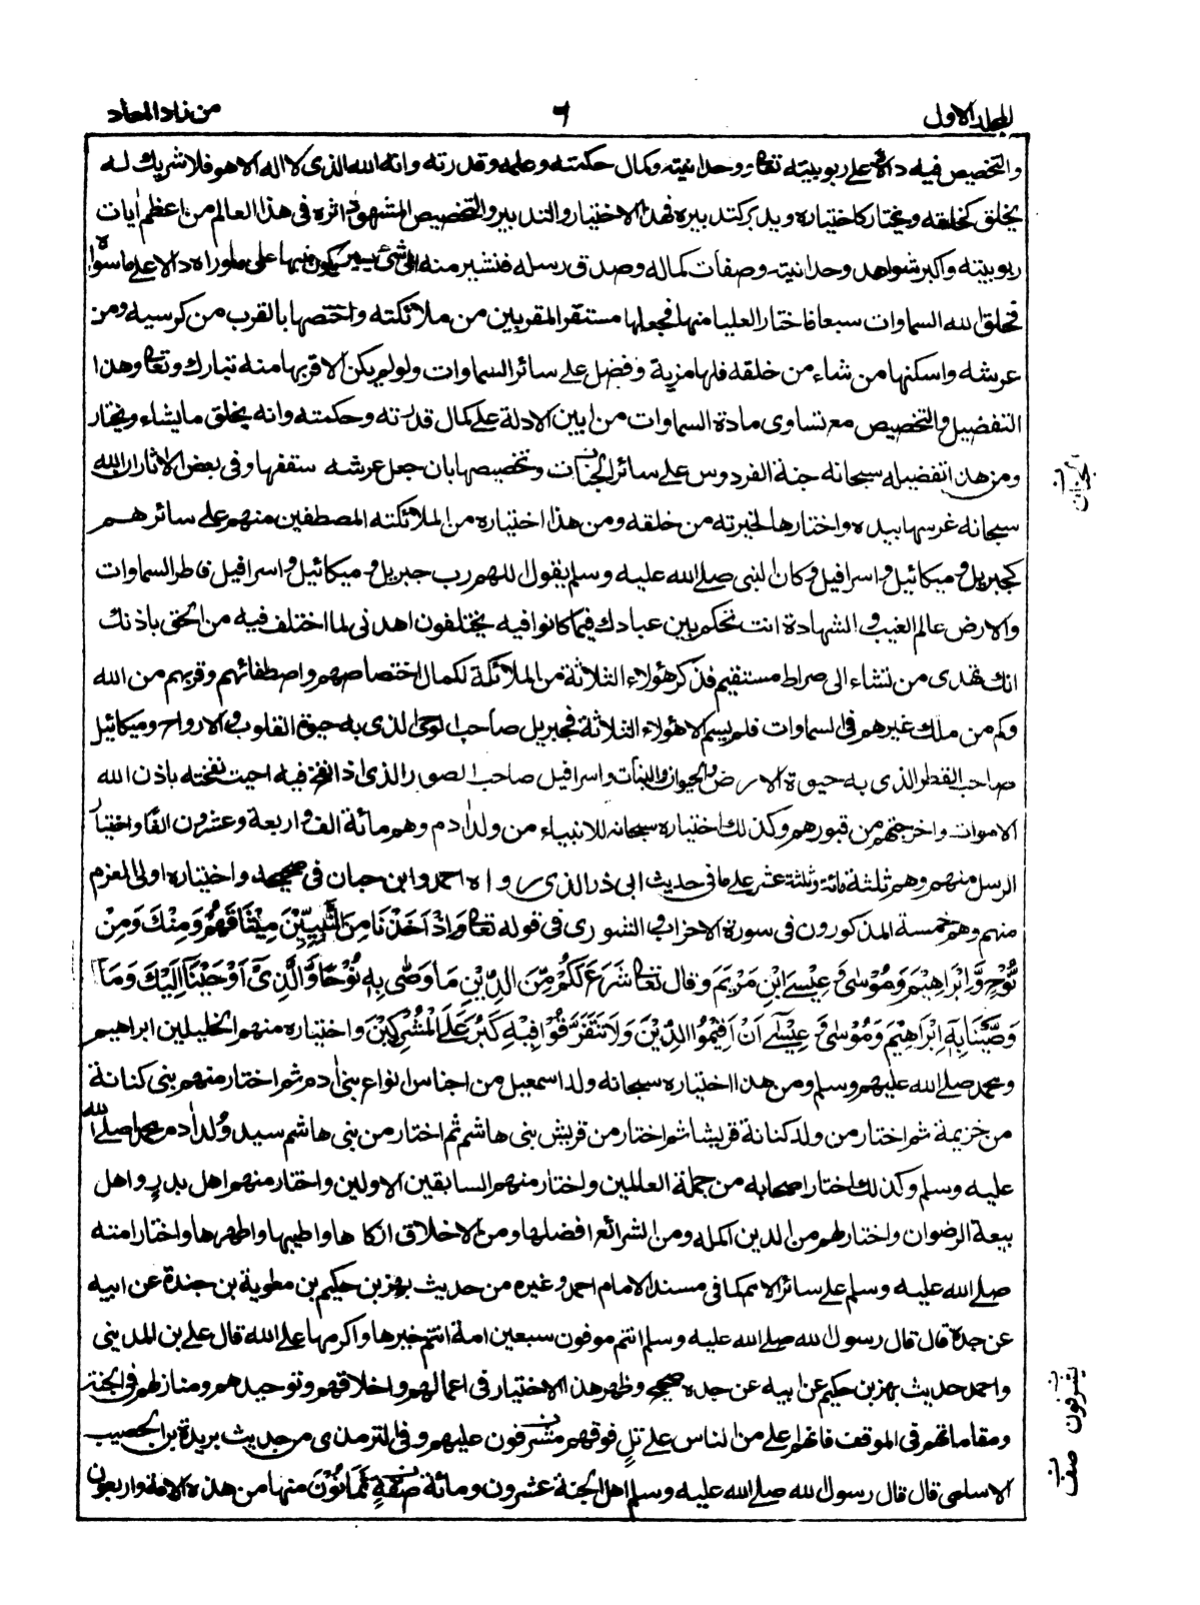 المجلد الاول
٦
من زاد المعاد
والتخصيص فيه دالا على ربوبيته تعالى ووحدانيته وكمال حكمته وعلمه وقدرته وانه الله الذى لا اله الا هو فلا شريك له
يخلق كخلقه ويختار كاختياره ويدبر كتدبيره فهذا الاختيار والتدبير والتخصيص المشهود اثره فى هذا العالم من اعظم اٰيات
ربوبيته واكبر شواهد وحدانيته وصفات كماله وصدق رسله فنشير منه الى شئ يسير يكون منبها على ما وراه دالا على ما سواه
فخلق الله السماوات سبعا فاختار العليا منها فجعلها مستقر المقربين من ملائكته واختصها بالقرب من كرسيه ومن
عرشه واسكنها من شاء من خلقه فلها مزية وفضل على سائر السماوات ولو لم يكن الا قربها منه تبارك وتعالى وهذا
التفضيل والتخصيص مع تساوى مادة السماوات من ابين الادلة على كمال قدرته وحكمته وانه يخلق ما يشاء ويختار
ومن هذا تفضيله سبحانه جنة الفردوس على سائر الجنات وتخصيصها بان جعل عرشه سقفها وفى بعض الاثار ان الله
سبحانه غرسها بيده واختارها لخيرته من خلقه ومن هذا اختياره من الملائكته المصطفين منهم على سائرهم
كجبريل وميكائيل واسرافيل وكان النبى صلى الله عليه وسلم يقول اللهم رب جبريل وميكائيل واسرافيل فاطر السماوات
والارض عالم الغيب والشهادة انت تحكم بين عبادك فيما كانوا فيه يختلفون اهدنى لما اختلف فيه من الحق باذنك
انك تهدى من تشاء الى صراط مستقيم فذكر هؤلاء الثلاثة من الملائكة لكمال اختصاصهم واصطفائهم وقربهم من الله
وكم من ملك غيرهم فى السماوات فلم يسم الا هؤلاء الثلاثة فجبريل صاحب الوحى الذى به حيوة القلوب والارواح وميكائيل
صاحب القطر الذى به حيوة الارض والحيوان والنبات واسرافيل صاحب الصور الذى اذا نفخ فيه احيت نفخته باذن الله
الاموات واخرجتهم من قبورهم وكذلك اختياره سبحانه للانبياء من ولد اٰدم وهم مائة الف واربعة وعشرون الفا واختيار
الرسل منهم وهم ثلثة مائة وثلثة عشر على ما فى حديث ابى ذر الذى رواه احمد وابن حبان فى صحيحه واختياره اولى العزم
منهم وهم خمسة المذكورون فى سورة الاحزاب والشورى فى قوله تعالى وَاِذْ اَخَذْنَا مِنَ النَّبِيّٖنَ مِيْثَاقَهُمْ وَمِنْكَ وَمِنْ
نُّوْحٍ وَّاِبْرَاهِيْمَ وَمُوْسٰى وَعِيْسَى ابْنِ مَرْيَمَ وقال تعالى شَرَعَ لَكُمْ مِّنَ الدِّيْنِ مَا وَصّٰى بِهٖ نُوْحًا وَّالَّذِىْٓ اَوْحَيْنَآ اِلَيْكَ وَمَا
وَصَّيْنَا بِهٖٓ اِبْرَاهِيْمَ وَمُوْسٰى وَعِيْسٰٓى اَنْ اَقِيْمُوا الدِّيْنَ وَلَا تَتَفَرَّقُوْا فِيْهِ كَبُرَ عَلَى الْمُشْرِكِيْنَ واختياره منهم الخليلين ابراهيم
ومحمد صلى الله عليهم وسلم ومن هذا اختياره سبحانه ولد اسمعيل من اجناس انواع بنى اٰدم ثم اختار منهم بنى كنانة
من خزيمة ثم اختار من ولد كنانة قريشا ثم اختار من قريش بنى هاشم ثم اختار من بنى هاشم سيد ولد اٰدم محمدا صلى الله
عليه وسلم وكذلك اختار اصحابه من جملة العالمين واختار منهم السابقين الاولين واختار منهم اهل بدر واهل
بيعة الرضوان واختار لهم من الدين اكمله ومن الشرائع افضلها ومن الاخلاق ازكاها واطيبها واطهرها واختار امته
صلى الله عليه وسلم على سائر الامم كما فى مسند الامام احمد وغيره من حديث بهز بن حكيم بن معوية بن حيدة عن ابيه
عن جده قال قال رسول الله صلى الله عليه وسلم انتم موفون سبعين امة انتم خيرها واكرمها على الله قال على بن المدينى
واحمد حديث بهز بن حكيم عن ابيه عن جده صحيح وظهر هذا الاختيار فى اعمالهم واخلاقهم وتوحيدهم ومنازلهم فى الجنة
ومقاماتهم فى الموقف فانهم على من الناس على تل فوقهم مشرفون عليهم وفى الترمذى من حديث بريدة بن الحصيب
الاسلمى قال قال رسول الله صلى الله عليه وسلم اهل الجنة عشرون ومائة صَفّةٍ ثَمَانُوْنَ منها من هذه الامة واربعون
يشرفون
صف